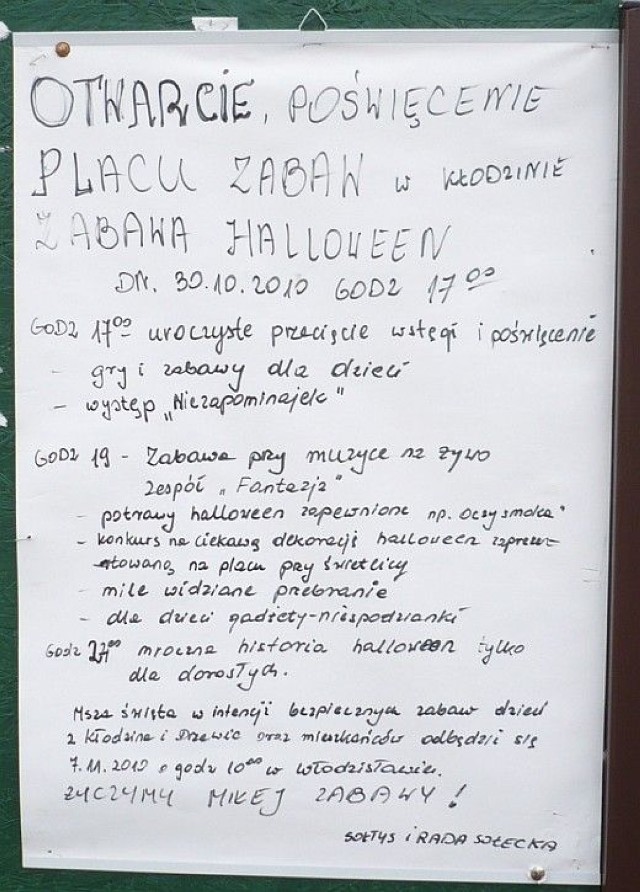 OTWARCIE, POŚWIĘCENIE
PLACU ZABAW w KŁODZINIE
ZABAWA HALLOWEEN
DN. 30.10.2010 GODZ 17⁰⁰
GODZ 17⁰⁰ uroczyste przecięcie wstęgi i poświęcenie
- gry i zabawy dla dzieci
- występ „Niezapominajek"
GODZ 19 - Zabawa przy muzyce na żywo
zespół „Fantazja"
- potrawy halloween zapewnione np. Oczy smoka"
- konkurs na ciekawą dekorację halloween zaprez-
entowaną na placu przy świetlicy
- mile widziane przebranie
- dla dzieci gadżety-niespodzianki
Godz 22⁰⁰ mroczna historia halloween tylko
dla dorosłych.
Msza święta w intencji bezpiecznych zabaw dzieci
z Kłodzina i Drzewic oraz mieszkańców odbędzie się
7.11.2010 o godz 10⁰⁰ w Włodzisławiu.
ŻYCZYMY MIŁEJ ZABAWY!
SOŁTYS i RADA SOŁECKA